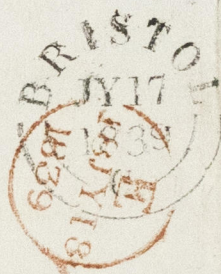 BRISTOL
JY 17
1839
E
18 JY 18
1839